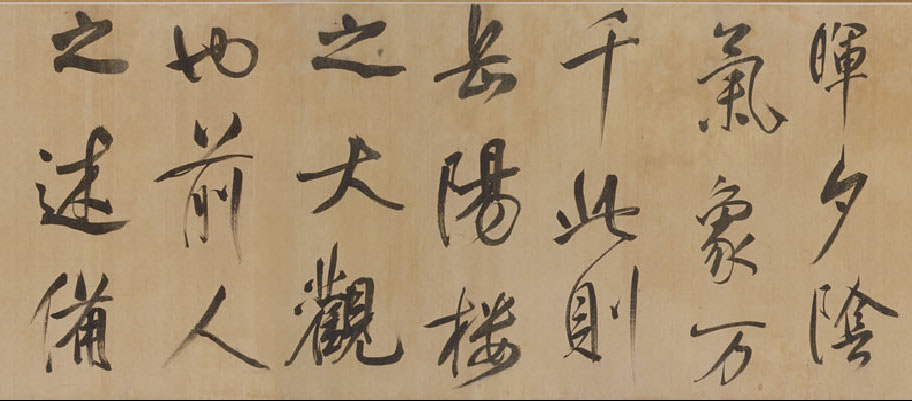 暉夕陰
氣象万
千此則
岳陽楼
之大觀
也前人
之述備